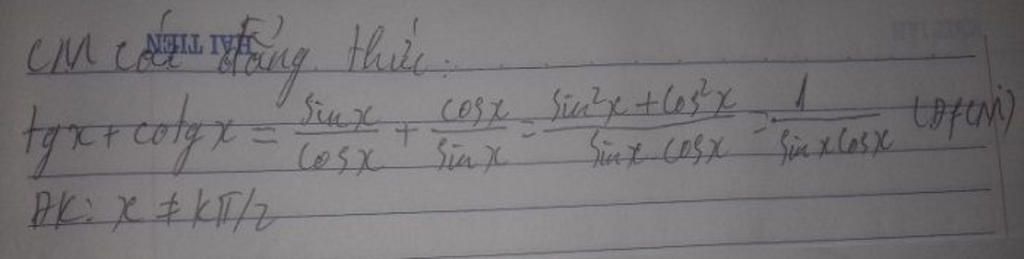 CM các đẳng thức:
HẢI TIẾN
tgx + cotgx = sinx/cosx + cosx/sinx = sin²x + cos²x/sinx.cosx = 1/sinxcosx (ĐfCM)
ĐK: x ≠ kπ/2